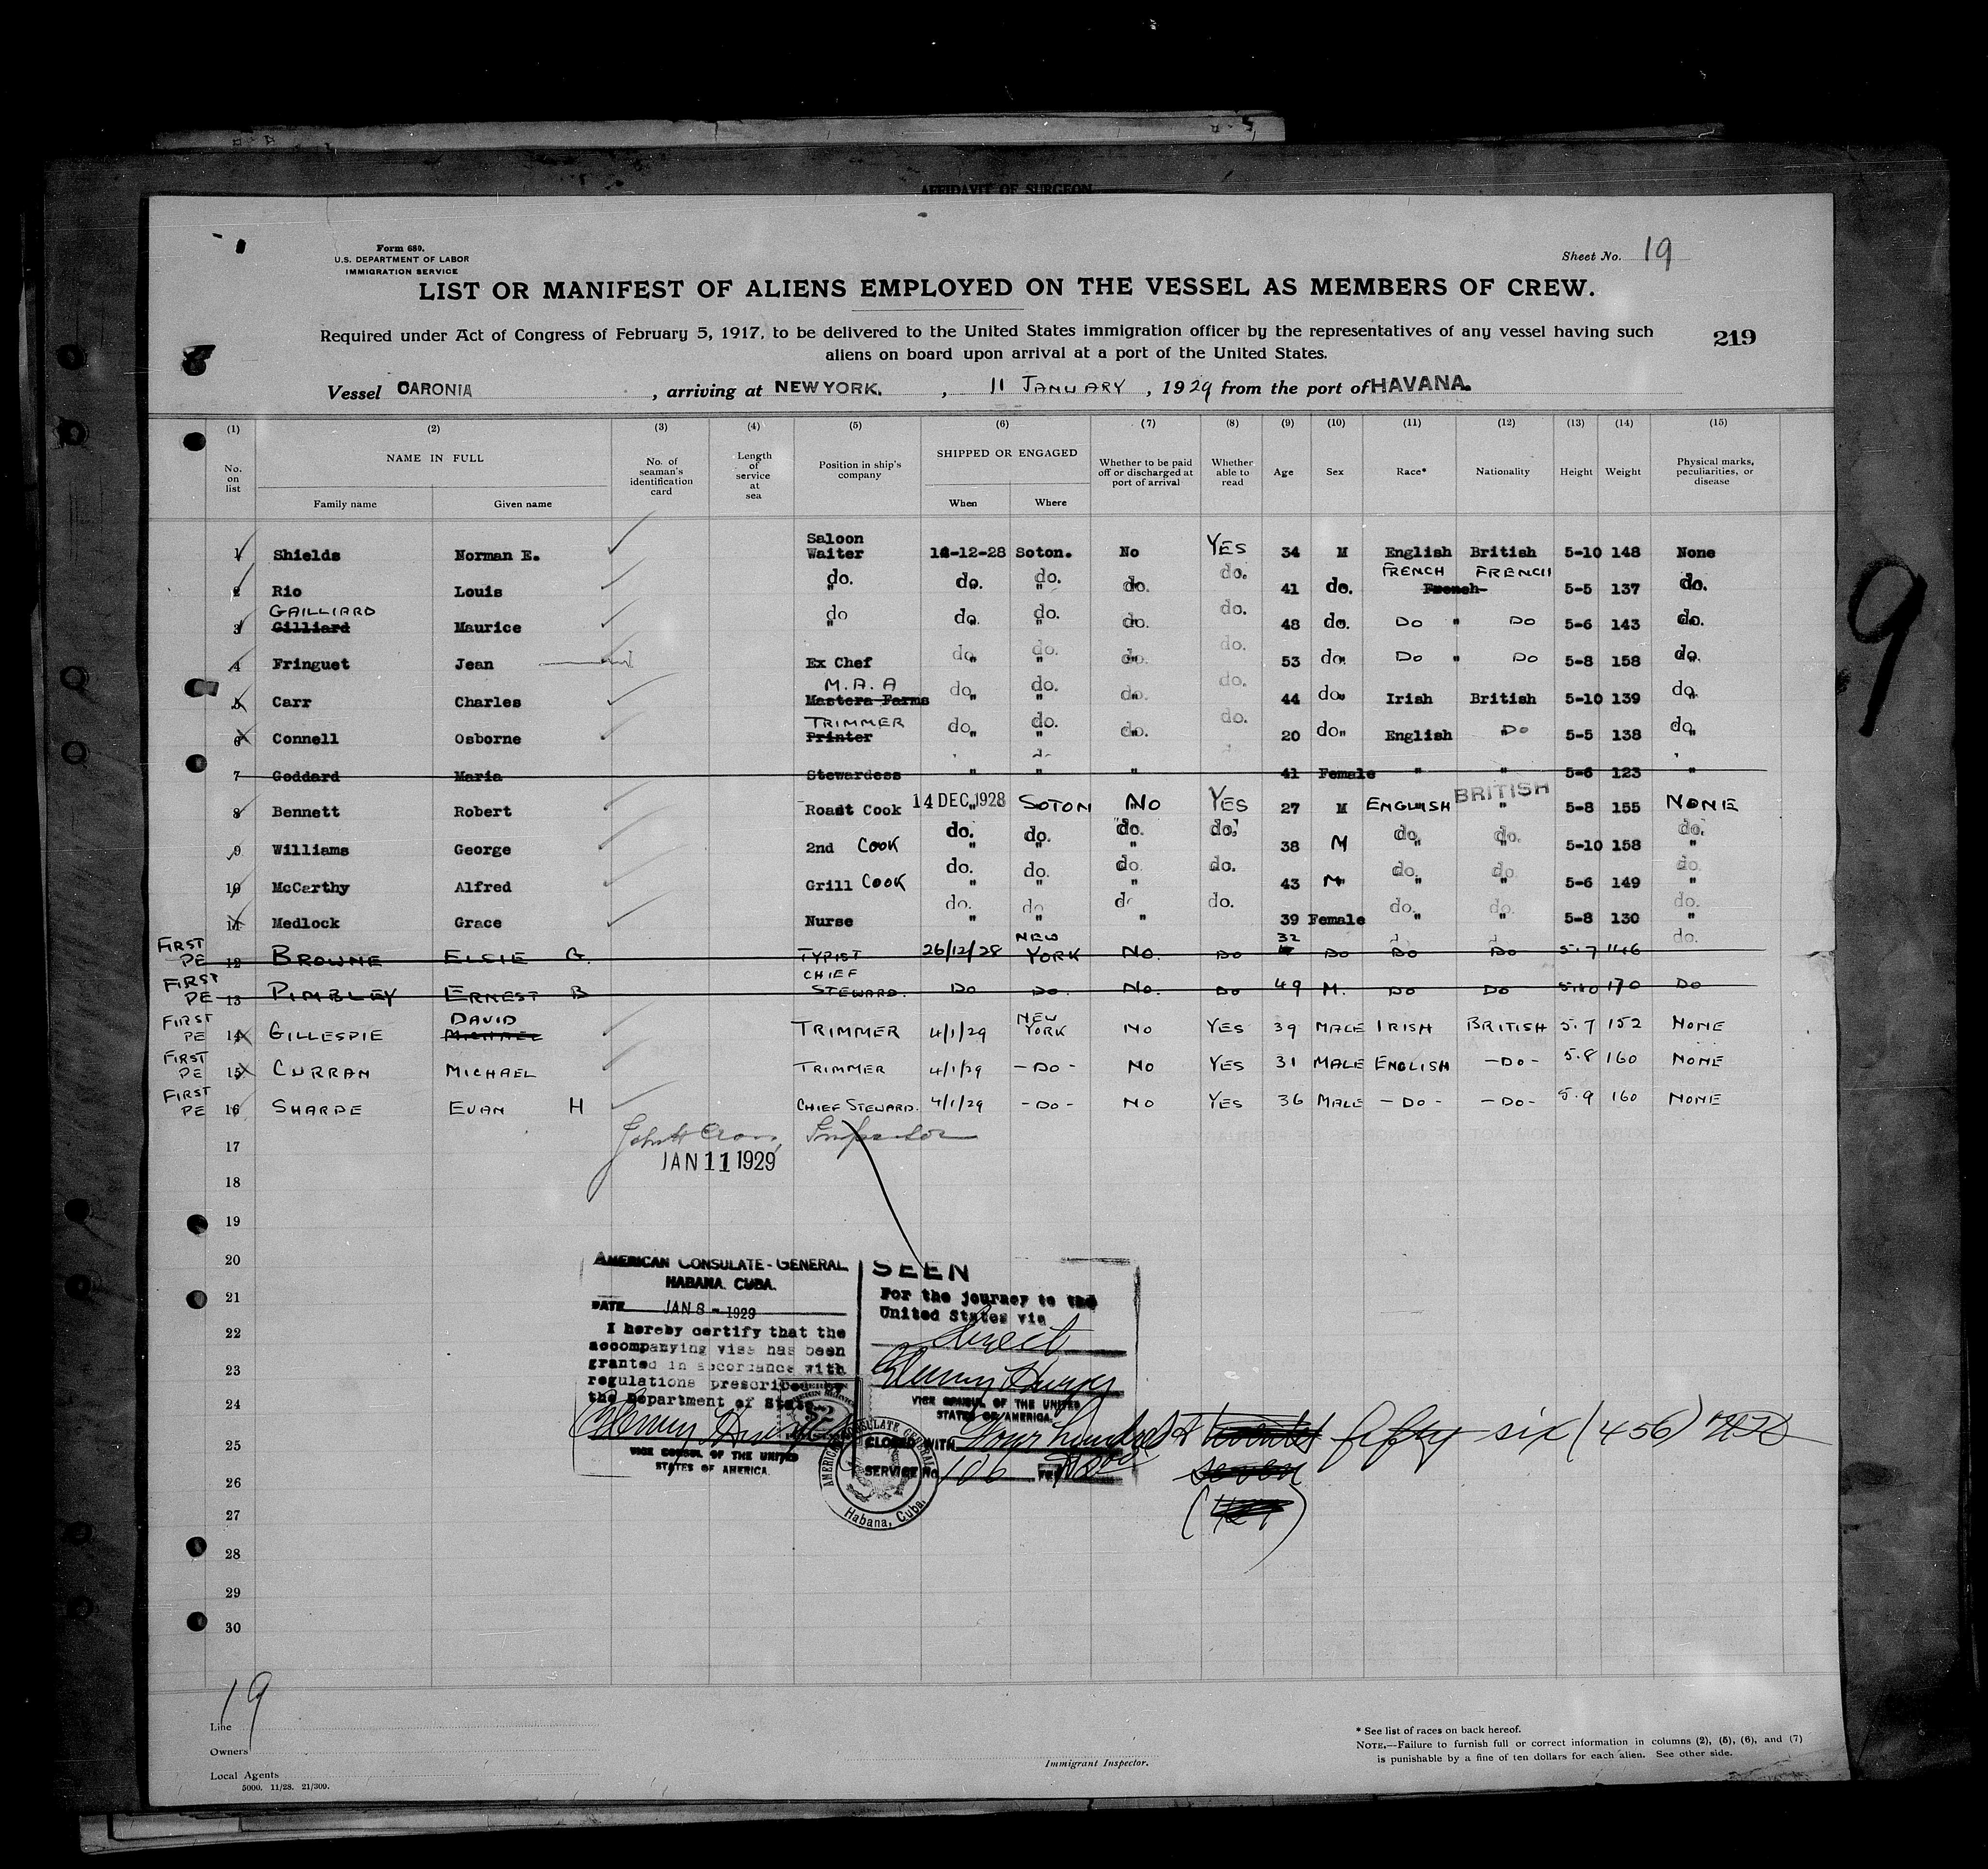 AFFIDAVIT OF SURGEON
Form 680.
U.S. DEPARTMENT OF LABOR
IMMIGRATION SERVICE
Sheet No. 19
LIST OR MANIFEST OF ALIENS EMPLOYED ON THE VESSEL AS MEMBERS OF CREW.
Required under Act of Congress of February 5, 1917, to be delivered to the United States immigration officer by the representatives of any vessel having such
aliens on board upon arrival at a port of the United States.
219
Vessel CARONIA, arriving at NEW YORK., 11 JANUARY, 1929 from the port of HAVANA.
(1) (2) (3) (4) (5) (6) (7) (8) (9) (10) (11) (12) (13) (14) (15)
No. on list NAME IN FULL Family name Given name No. of seaman's identification card Length of service at sea Position in ship's company SHIPPED OR ENGAGED When Where Whether to be paid off or discharged at port of arrival Whether able to read Age Sex Race* Nationality Height Weight Physical marks, peculiarities, or disease
1 Shields Norman E. Saloon Waiter 14-12-28 Soton. No YES 34 M English British 5-10 148 None
2 Rio Louis do. do. do. do. do. 41 do. FRENCH French FRENCH 5-5 137 do.
3 GAILLIARD Gilliard Maurice do do. do. do. do. 48 do. DO " DO 5-6 143 do.
4 Fringuet Jean Ex Chef do. do. do. do. 53 do. DO " DO 5-8 158 do.
5 Carr Charles M.A.A Masters Farms do. do. do. do. 44 do. Irish British 5-10 139 do.
6 Connell Osborne TRIMMER Printer do. do. do. do. 20 do. English DO 5-5 138 do.
7 Goddard Maria Stewardess " " " 41 Female " " 5-6 123 "
8 Bennett Robert Roast Cook 14 DEC 1928 SOTON NO YES 27 M ENGLISH BRITISH 5-8 155 NONE
9 Williams George 2nd COOK do. do. do. do. 38 M do. do. 5-10 158 do.
10 McCarthy Alfred Grill COOK do. do. do. do. 43 M do. do. 5-6 149 do.
11 Medlock Grace Nurse do. do do. do. 39 Female do. do. 5-8 130 do.
FIRST PE 12 BROWNE ELSIE G. TYPIST 26/12/28 NEW YORK NO. DO 32 DO DO DO 5.7 146 do.
FIRST PE 13 PIMBLEY ERNEST B CHIEF STEWARD. DO DO. NO. DO 49 M. DO DO 5.10 170 DO
FIRST PE 14 GILLESPIE DAVID MICHAEL TRIMMER 4/1/29 NEW YORK NO YES 39 MALE IRISH BRITISH 5.7 152 NONE
FIRST PE 15 CURRAN MICHAEL TRIMMER 4/1/29 -DO- NO YES 31 MALE ENGLISH -DO- 5.8 160 NONE
FIRST PE 16 SHARPE EVAN H CHIEF STEWARD. 4/1/29 -DO- NO YES 36 MALE -DO- -DO- 5.9 160 NONE
17 Inspector
JAN 11 1929
18
19
20
21
22
23
24
25
26
27
28
29
30
AMERICAN CONSULATE-GENERAL
HABANA. CUBA.
DATE JAN 8-1929
I hereby certify that the
accompanying visa has been
granted in accordance with
regulations prescribed by
the Department of State.
VICE CONSUL OF THE UNITED
STATES OF AMERICA.
SEEN
For the journey to the
United States via
direct
VICE CONSUL OF THE UNITED
STATES OF AMERICA.
CLOSED WITH Four hundred & twenty fifty six (456)
seven
(427)
SERVICE No. 106
AMERICAN CONSULATE GENERAL
Habana, Cuba.
9
19
Line
Owners
Local Agents
5000. 11/28. 21/309.
Immigrant Inspector.
* See list of races on back hereof.
NOTE.—Failure to furnish full or correct information in columns (2), (5), (6), and (7)
is punishable by a fine of ten dollars for each alien. See other side.